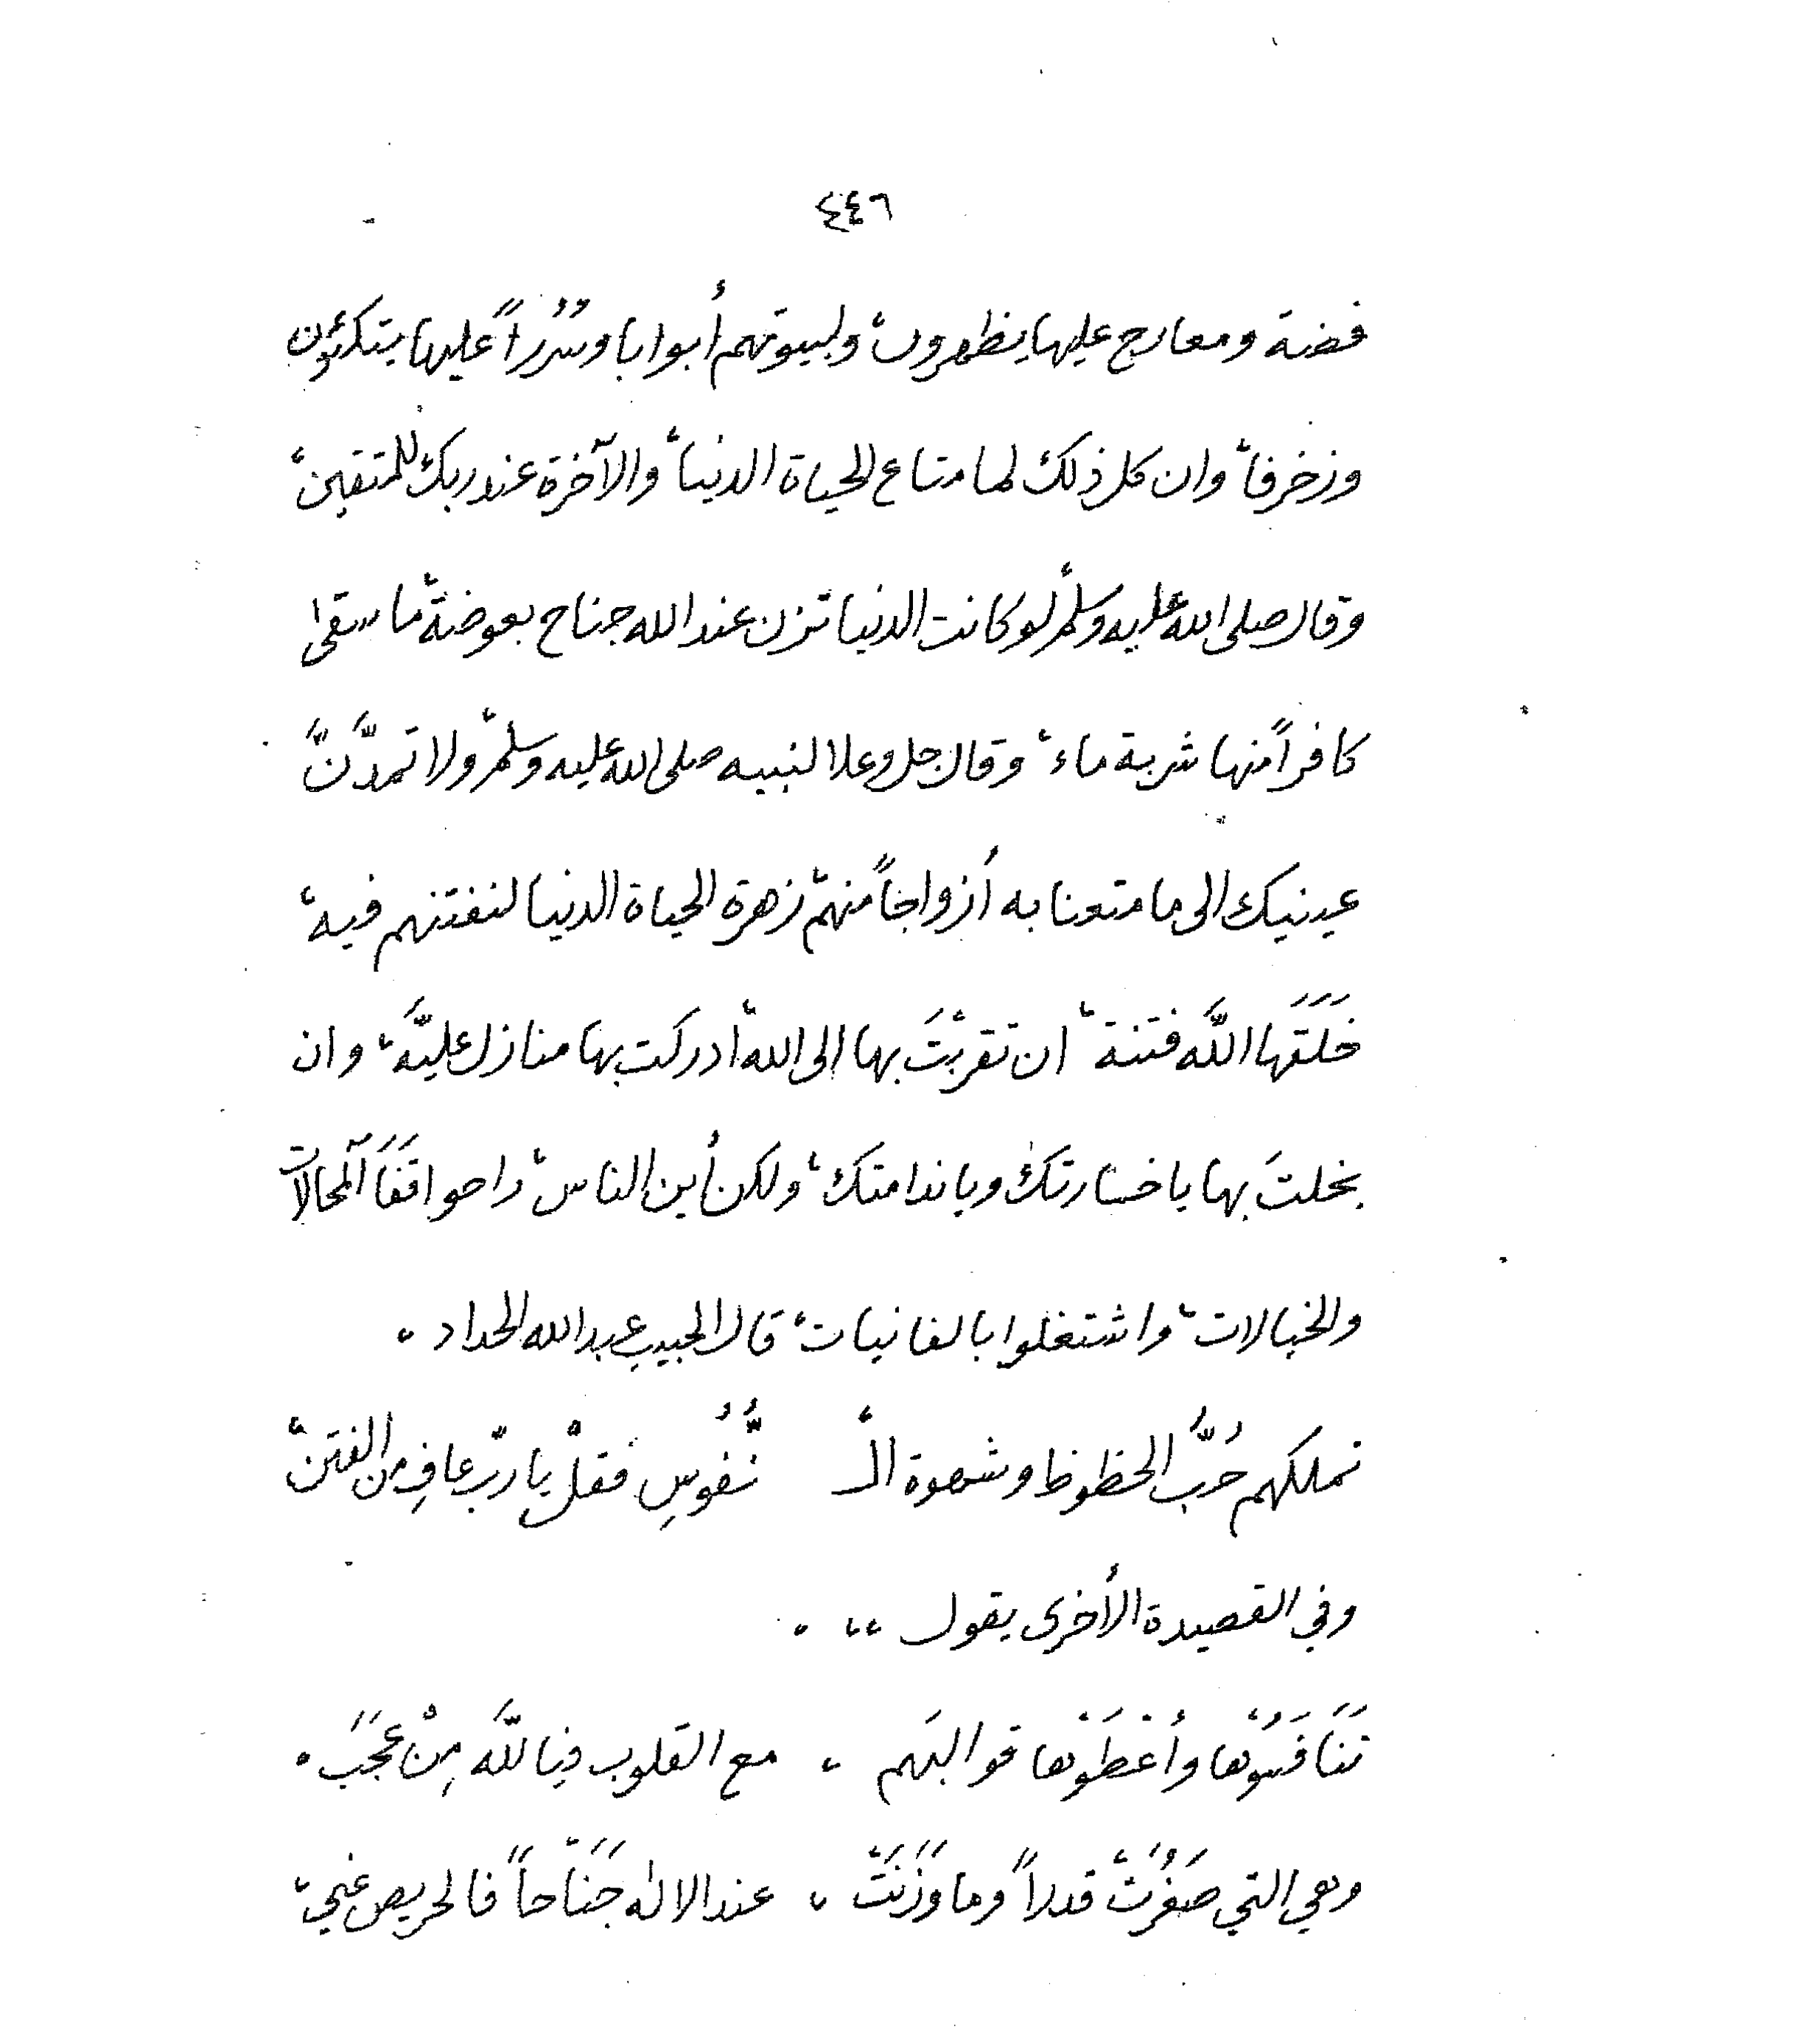 ٤٤٦
فضة ومعارج عليها يظهرون، ولبيوتهم أبوابا وسُرُراً عليها يتكئون
وزخرفا، وان كل ذلك لما متاع الحياة الدنيا، والآخرة عند ربك للمتقين،
وقال صلى الله عليه وسلم، لو كانت الدنيا تزن عند الله جناح بعوضة، ما سقى
كافراً منها شربة ماء، وقال جل وعلا لنبيه صلى الله عليه وسلم، ولا تمدَّنَّ
عينيك الى ما متعنا به أزواجاً منهم، زهرة الحياة الدنيا لنفتنهم فيه،
خَلَقَها اللَّه فتنة، ان تقربْتَ بها الى الله، ادركت بها منازل عليَّه، وان
بخلتَ بها يا خسارتك، ويا ندامتك، ولكن أين الناس، راحوا قَفَا آلمحالات
والخيالات، واشتغلوا بالفانيات، قال الحبيب عبدالله الحداد .
تملكهم حُبُّ الحظوظ وشهوة الْـ نُّفُوسِ فقلْ يا ربّ عافِ من الفتنْ،
وفي القصيدة الأخرى يقول ،، .
تَنَافَسُوْها وأعْطَوْها قوالبَهم ، مع القلوب فيا للَّه مِنْ عَجَبَ .
وهي التي صَغُرَتْ قدراً وما وَزَنَتْ ، عند الاله جَنَاْحاً فالحريص غبي،